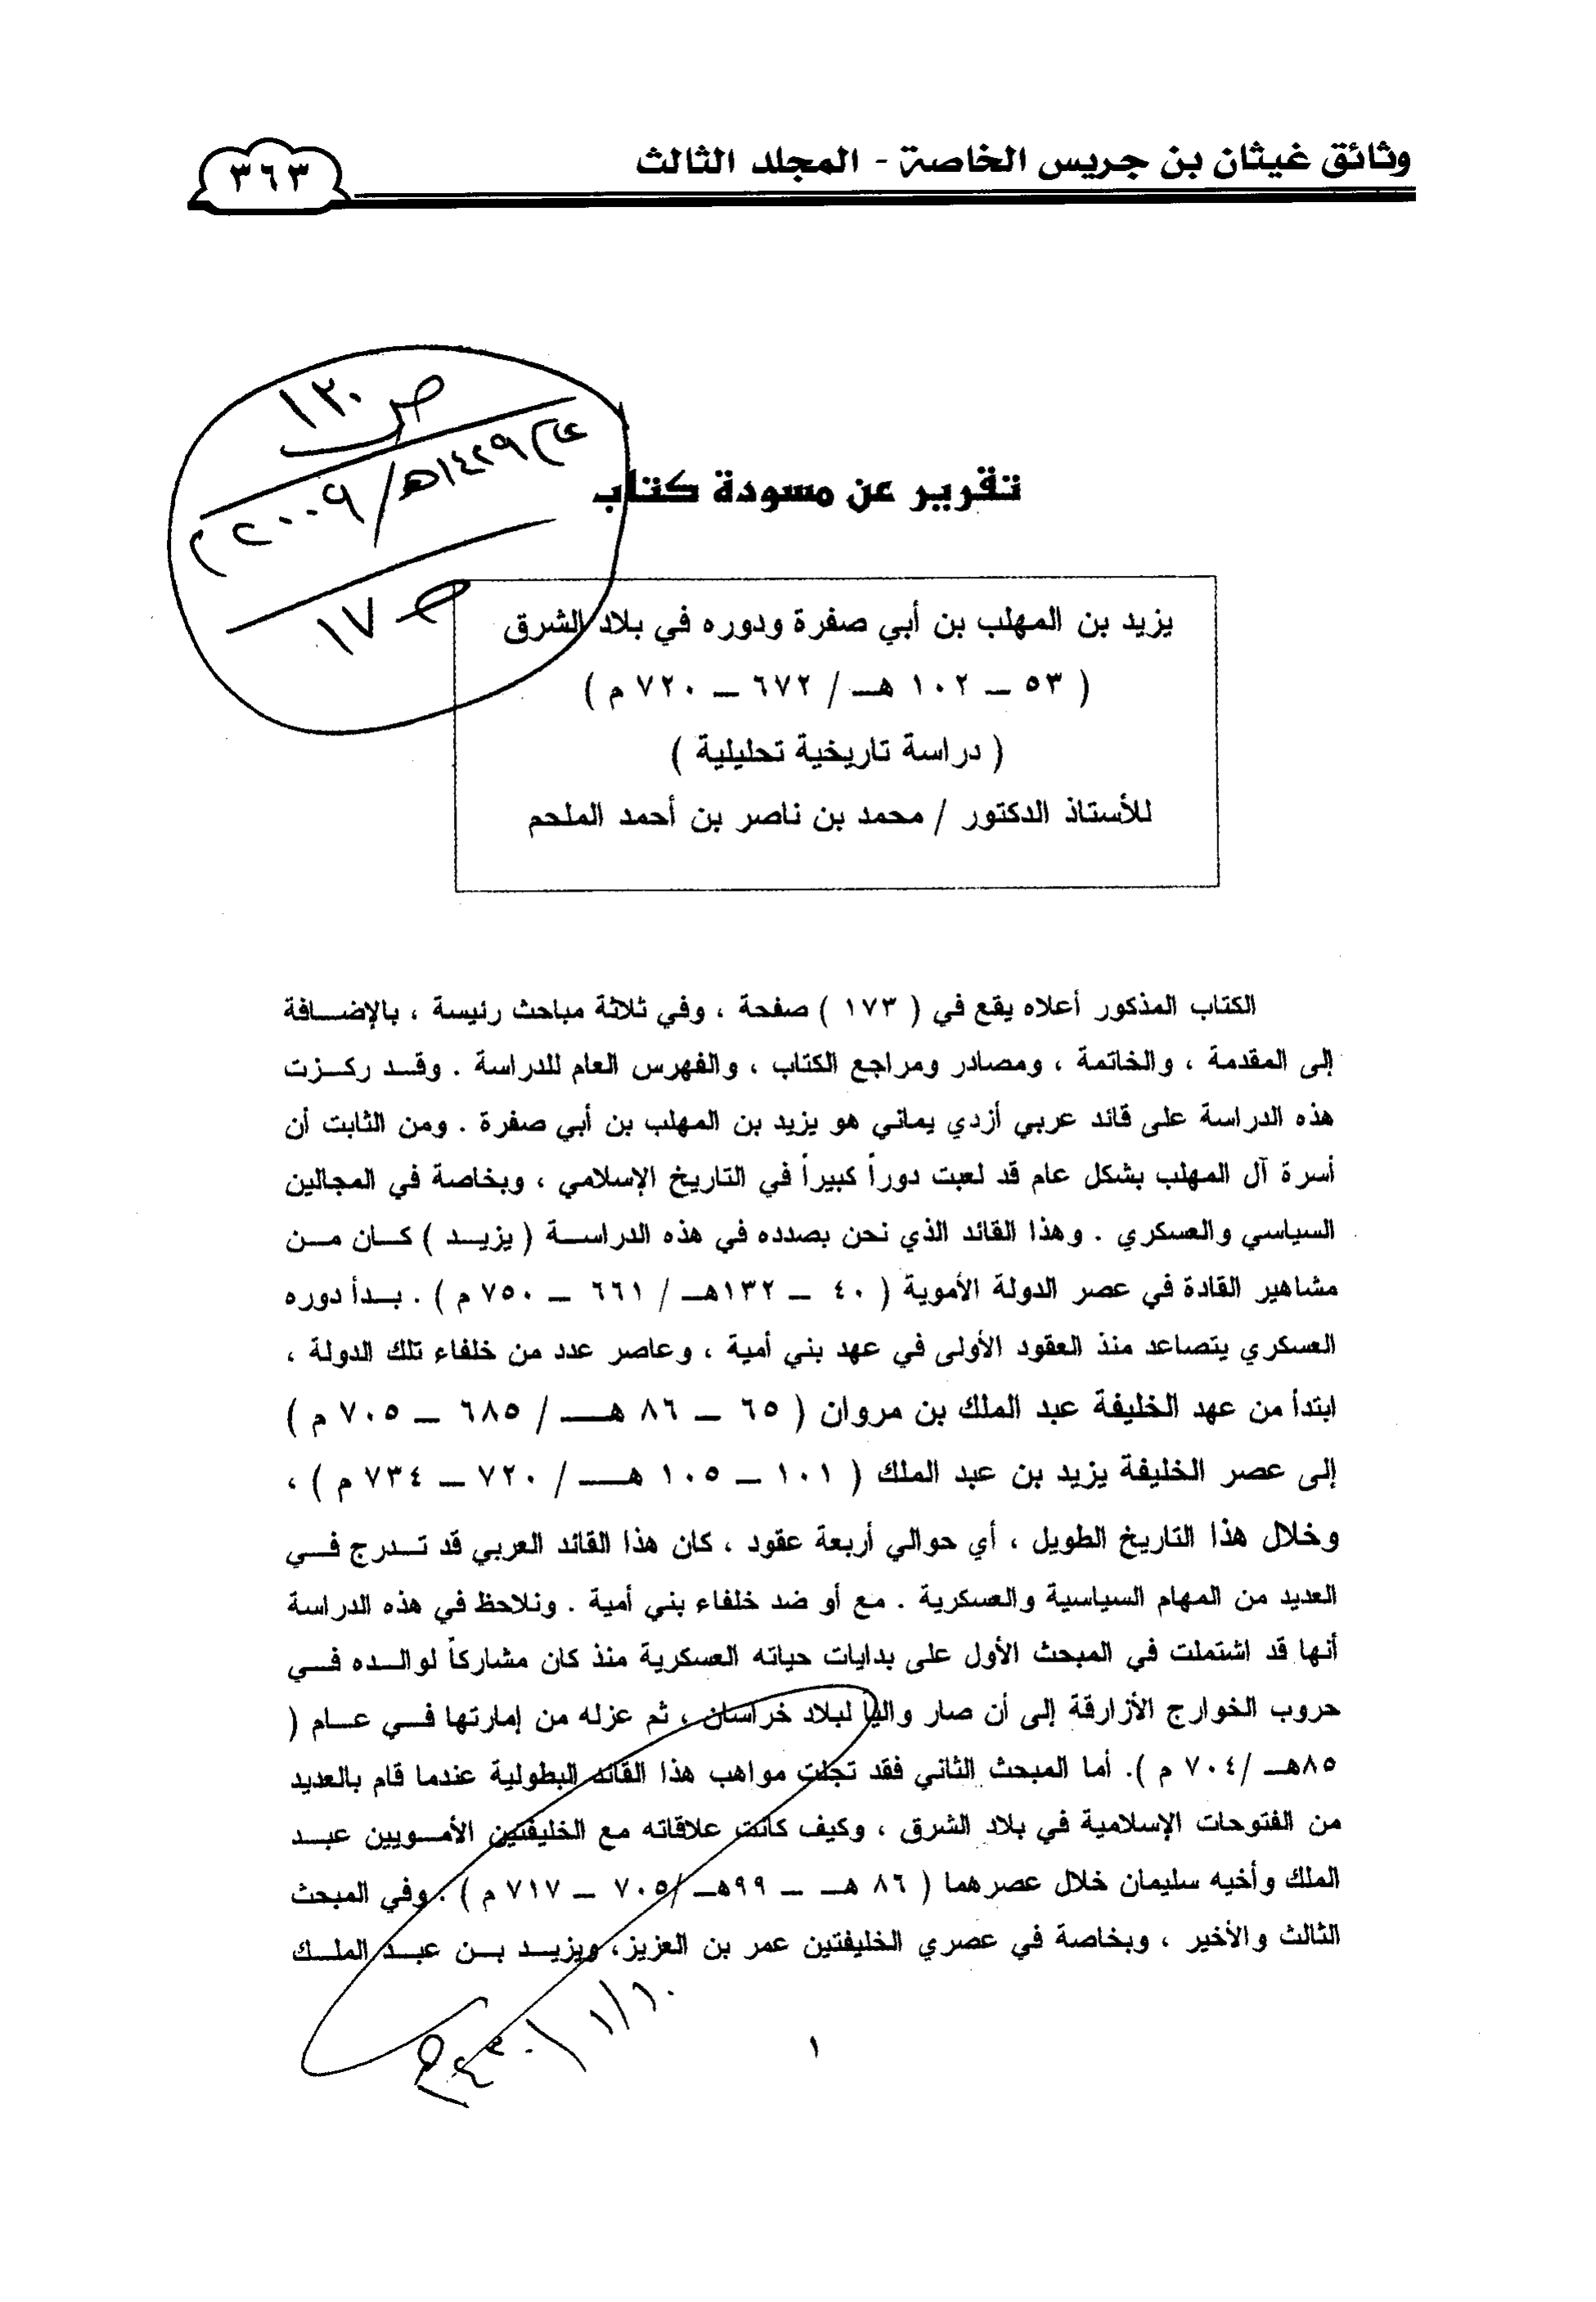 وثائق غيثان بن جريس الخاصة - المجلد الثالث
٣٦٣
ص ١٣٠
عام ١٤٢٩هـ/٢٠٠٩م
ص ١٧
تقرير عن مسودة كتاب
يزيد بن المهلب بن أبي صفرة ودوره في بلاد الشرق
( ٥٣ – ١٠٢ هـ / ٦٧٢ – ٧٢٠ م )
( دراسة تاريخية تحليلية )
للأستاذ الدكتور / محمد بن ناصر بن أحمد الملحم
الكتاب المذكور أعلاه يقع في ( ١٧٣ ) صفحة ، وفي ثلاثة مباحث رئيسة ، بالإضافة
إلى المقدمة ، والخاتمة ، ومصادر ومراجع الكتاب ، والفهرس العام للدراسة . وقد ركزت
هذه الدراسة على قائد عربي أزدي يماني هو يزيد بن المهلب بن أبي صفرة . ومن الثابت أن
أسرة آل المهلب بشكل عام قد لعبت دوراً كبيراً في التاريخ الإسلامي ، وبخاصة في المجالين
السياسي والعسكري . وهذا القائد الذي نحن بصدده في هذه الدراسة ( يزيد ) كان من
مشاهير القادة في عصر الدولة الأموية ( ٤٠ – ١٣٢هـ / ٦٦١ – ٧٥٠ م ) . بدأ دوره
العسكري يتصاعد منذ العقود الأولى في عهد بني أمية ، وعاصر عدد من خلفاء تلك الدولة ،
ابتدأ من عهد الخليفة عبد الملك بن مروان ( ٦٥ – ٨٦ هـ / ٦٨٥ – ٧٠٥ م )
إلى عصر الخليفة يزيد بن عبد الملك ( ١٠١ – ١٠٥ هـ / ٧٢٠ – ٧٣٤ م ) ،
وخلال هذا التاريخ الطويل ، أي حوالي أربعة عقود ، كان هذا القائد العربي قد تدرج في
العديد من المهام السياسية والعسكرية . مع أو ضد خلفاء بني أمية . ونلاحظ في هذه الدراسة
أنها قد اشتملت في المبحث الأول على بدايات حياته العسكرية منذ كان مشاركاً لوالده في
حروب الخوارج الأزارقة إلى أن صار والياً لبلاد خراسان ، ثم عزله من إمارتها في عام (
٨٥هـ /٧٠٤ م ). أما المبحث الثاني فقد تجلت مواهب هذا القائد البطولية عندما قام بالعديد
من الفتوحات الإسلامية في بلاد الشرق ، وكيف كانت علاقاته مع الخليفتين الأمويين عبد
الملك وأخيه سليمان خلال عصرهما ( ٨٦ هـ – ٩٩هـ /٧٠٥ – ٧١٧ م ) . وفي المبحث
الثالث والأخير ، وبخاصة في عصري الخليفتين عمر بن العزيز، ويزيد بن عبد الملك
١